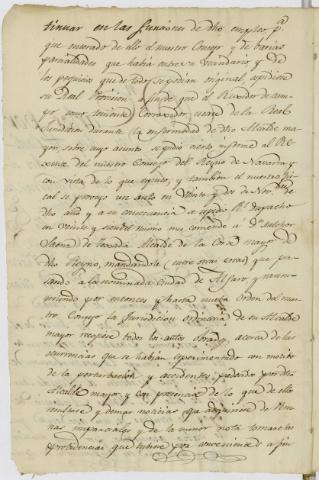 tinuar en las funciones de dho empleo; p.ª
que enterado de ello el nuestro Consejo y de varias
parcialidades que había entre su Vecindario, y de
los perjuicios que de todo se podían originar, expidiese
su Real Provision, para que el Rexidor de
como teniente Corregidor usare de la Real
Jurisdicion durante la enfermedad de dho Alcalde ma-
yor sobre cuyo asunto se pidió cierto informe al Re-
xente del nuestro Consejo del Reyno de Navarra y
con vista de lo que expuso, y tambien el nuestro fis-
cal se proveyo un auto en Veinte y dos de Nov.bre
dho año y a su consecuencia se expidio R.l despacho
en veinte y siete del mismo mes cometido a D.n Melchor
Saenz de Texada Alcalde de la Corte mayor de
dho Reyno, mandandole (entre otras cosas) que pa-
sando a la nominada Ciudad de Alfaro y reasu-
miendo por entonces y hasta nueba Orden del nues-
tro Consejo la Jurisdicion ordinaria de su Alcalde
mayor recojiese todos los autos obrados, acerca de las
ocurrencias que se habían experimentado con motivo
de la perturbacion y accidentes padecidos por dho
Alcalde mayor y con presencia de lo que de ellos
resultase y demas noticias que adquiriese de Perso-
nas imparciales y de la mejor nota tomase las
providencias que tubiere por conveniente a fin